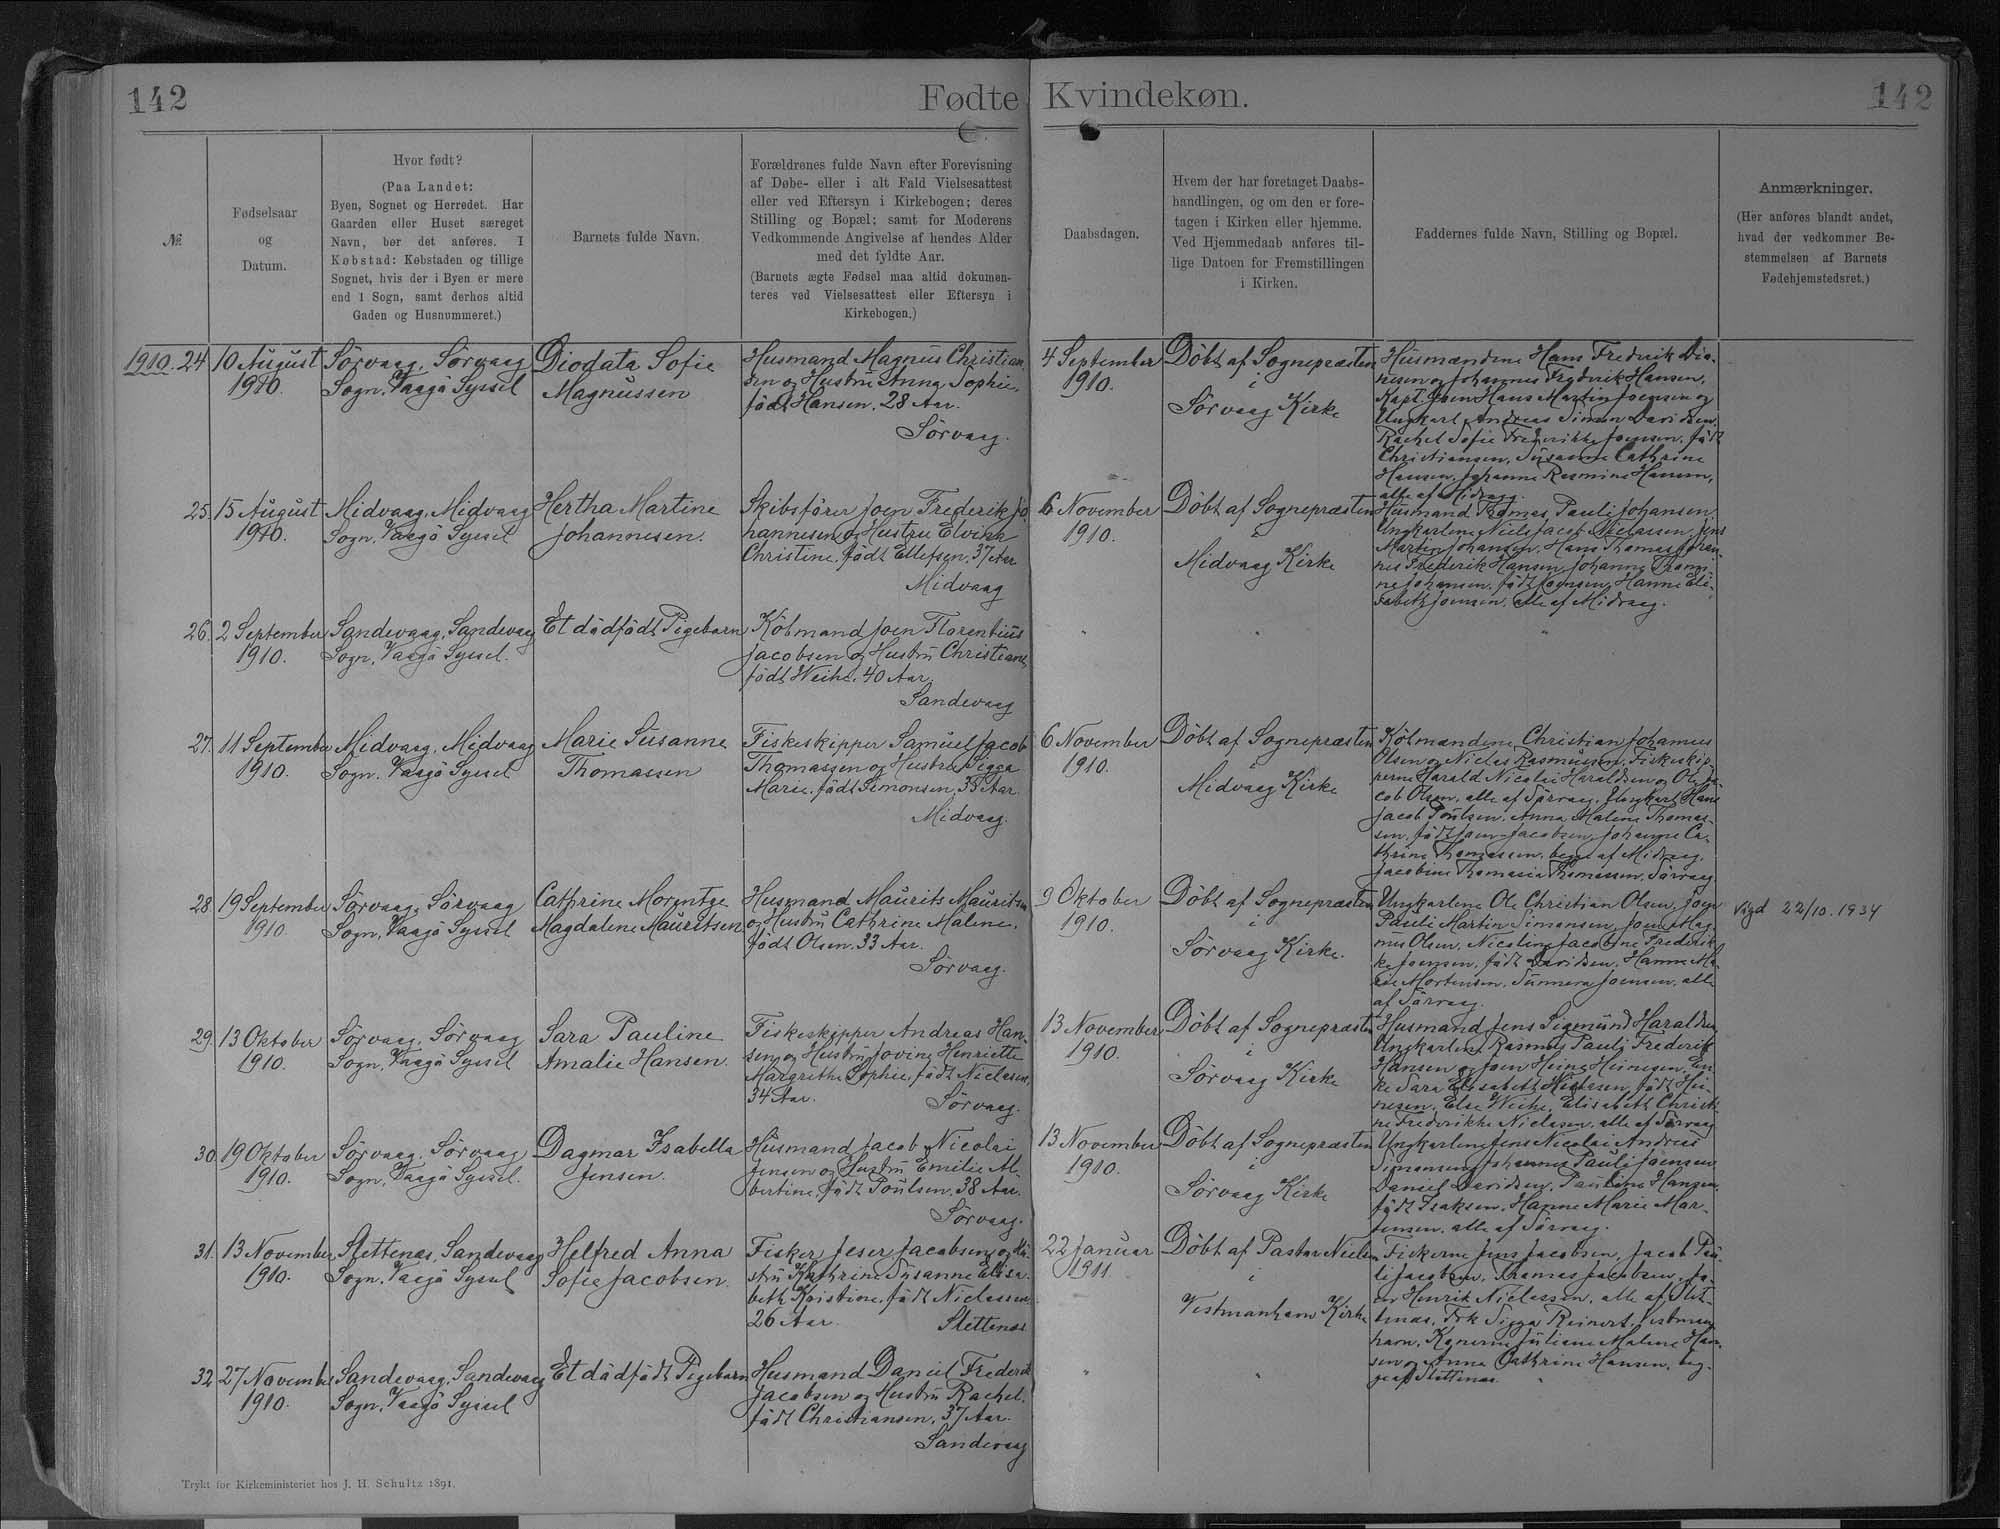 142
Fødte Kvindekøn.
142
№
Fødselsaar
og
Datum.
Hvor født?
(Paa Landet:
Byen, Sognet og Herredet. Har
Gaarden eller Huset særeget
Navn, bør det anføres. I
Købstad: Købstaden og tillige
Sognet, hvis der i Byen er mere
end 1 Sogn, samt derhos altid
Gaden og Husnummeret.)
Barnets fulde Navn.
Forældrenes fulde Navn efter Forevisning
af Døbe- eller i alt Fald Vielsesattest
eller ved Eftersyn i Kirkebogen; deres
Stilling og Bopæl; samt for Moderens
Vedkommende Angivelse af hendes Alder
med det fyldte Aar.
(Barnets ægte Fødsel maa altid dokumen-
teres ved Vielsesattest eller Eftersyn i
Kirkebogen.)
Daabsdagen.
Hvem der har foretaget Daabs-
handlingen, og om den er fore-
tagen i Kirken eller hjemme.
Ved Hjemmedaab anføres til-
lige Datoen for Fremstillingen
i Kirken.
Faddernes fulde Navn, Stilling og Bopæl.
Anmærkninger.
(Her anføres blandt andet,
hvad der vedkommer Be-
stemmelsen af Barnets
Fødehjemstedsret.)
1910. 24
10 August
1910.
Sörvaag, Sörvaag
Sogn, Vaagö Syssel
Diodata Sofie
Magnussen
Husmand Magnus Christian-
sen og Hustru Anna Sophie,
född Hansen, 28 Aar.
Sörvaag.
4 September
1910.
Döbt af Sognepræsten
i
Sörvaag Kirke
Husmændene Hans Frederik Dio-
nesen og Johannes Frederik Hansen,
Kapt. Joen Hans Martin Joensen og
Ungkarl Andreas Simon Davidsen,
Rachel Sofie Frederikke Joensen, födt
Christiansen, Susanne Cathrine
Hansen, Johanne Rasmine Hansen,
alle af Midvaag.
25.
15 August
1910.
Midvaag, Midvaag
Sogn, Vaagö Syssel
Hertha Martine
Johannesen.
Skibsförer Joen Frederik Jo-
hannesen og Hustru Elvina
Christine, födt Ellefsen, 37 Aar
Midvaag
6 November
1910.
Döbt af Sognepræsten
i
Midvaag Kirke
Husmand Thomas Pauli Johansen,
Ungkarlene Niels Jacob Niclasen, Jens
Martin Johansen, Hans Thomas Johan-
nes Frederik Hansen, Johanne Thomi-
ne Johansen, födt Joensen, Hanne Eli-
sabeth Joensen, alle af Midvaag.
26.
2 September
1910.
Sandevaag, Sandevaag
Sogn, Vaagö Syssel.
Et dödfödt Pigebarn
Köbmand Joen Florentius
Jacobsen og Hustru Christiane,
födt Weihe, 40 Aar.
Sandevaag
" " "
27.
11 September
1910.
Midvaag, Midvaag
Sogn, Vaagö Syssel
Marie Susanne
Thomassen
Fiskeskipper Samuel Jacob
Thomassen og Hustru Sigga
Marie, födt Simonsen, 33 Aar.
Midvaag.
6 November
1910.
Döbt af Sognepræsten
i
Midvaag Kirke
Köbmændene Christian Johannes
Olsen og Niclas Rasmussen, Fiskeskip-
perne Harald Nicolai Haraldsen og Ole Ja-
cob Olsen, alle af Sörvaag, Ungkarl Hans
Jacob Poulsen, Anna Malene Thomas-
sen, födt Joen-Jacobsen, Johanne Ca-
thrine Thomassen, begge af Midvaag,
Jacobine Thomasia Thomassen, Sörvaag
28.
19 September
1910.
Sörvaag, Sörvaag
Sogn, Vaagö Syssel
Cathrine Morentze
Magdalene Mauritsen
Husmand Maurits Mauritsen
og Hustru Cathrine Malene,
födt Olsen, 33 Aar.
Sörvaag.
9 Oktober
1910.
Döbt af Sognepræsten
i
Sörvaag Kirke.
Ungkarlene Ole Christian Olsen, Joen
Pauli Martin Simonsen, Joen Mag-
nus Olsen, Nicoline Jacobine Frederik-
ke Joensen, födt Davidsen, Hanne Ma-
rie Mortensen, Sunneva Joensen, alle
af Sörvaag.
Vigd 22/10. 1934
29.
13 Oktober
1910.
Sörvaag, Sörvaag
Sogn, Vaagö Syssel
Sara Pauline
Amalie Hansen.
Fiskeskipper Andreas Han-
sen og Hustru Jovine Henriette
Margrethe Sophie, födt Niclasen,
34 Aar.
Sörvaag.
13 November
1910.
Döbt af Sognepræsten
i
Sörvaag Kirke
Husmand Jens Sigmund Haraldsen,
Ungkarlene Rasmus Pauli Frederik
Hansen og Joen Heine Heinesen, En-
ke Sara Elisabeth Niclasen, födt Hei-
nesen, Else Weihe, Elisabeth Christi-
ne Frederikke Niclasen, alle af Sörvaag
30.
19 Oktober
1910.
Sörvaag, Sörvaag
Sogn, Vaagö Syssel.
Dagmar Isabella
Jensen.
Husmand Jacob Nicolai
Jensen og Hustru Emilie Al-
bertine, födt Poulsen, 38 Aar.
Sörvaag.
13 November
1910.
Döbt af Sognepræsten
i
Sörvaag Kirke
Ungkarlene Jens Nicolai Andreas
Simonsen, Johannes Pauli Joensen,
Daniel Davidsen, Pauline Hansen,
födt Isaksen, Hanne Marie Mor-
tensen, alle af Sörvaag.
31.
13 November
1910.
Slettenæs, Sandevaag
Sogn, Vaagö Syssel
Helfred Anna
Sofie Jacobsen.
Fisker Jeser Jacobsen og Hu-
stru Kathrine Susanne Elisa-
beth Kristine, födt Niclassen,
26 Aar.
Slettenæs
22 Januar
1911.
Döbt af Pastor Nielsen
i
Vestmanhavn Kirke
Fiskerne Jens Jacobsen, Jacob Pau-
li Jacobsen, Thomas Jacobsen,
Henrik Niclassen, alle af Slet-
tenæs, Frk Sigga Reinert, Vestman-
havn, Konerne Juliane Malene Han-
sen og Anna Cathrine Hansen, beg-
ge af Slettenæs.
32.
27 November
1910.
Sandevaag, Sandevaag
Sogn, Vaagö Syssel
Et dödfödt Pigebarn
Husmand Daniel Frederik
Jacobsen og Hustru Rachel,
födt Christiansen, 37 Aar.
Sandevaag
" " "
Trykt for Kirkeministeriet hos J. H. Schultz 1891.